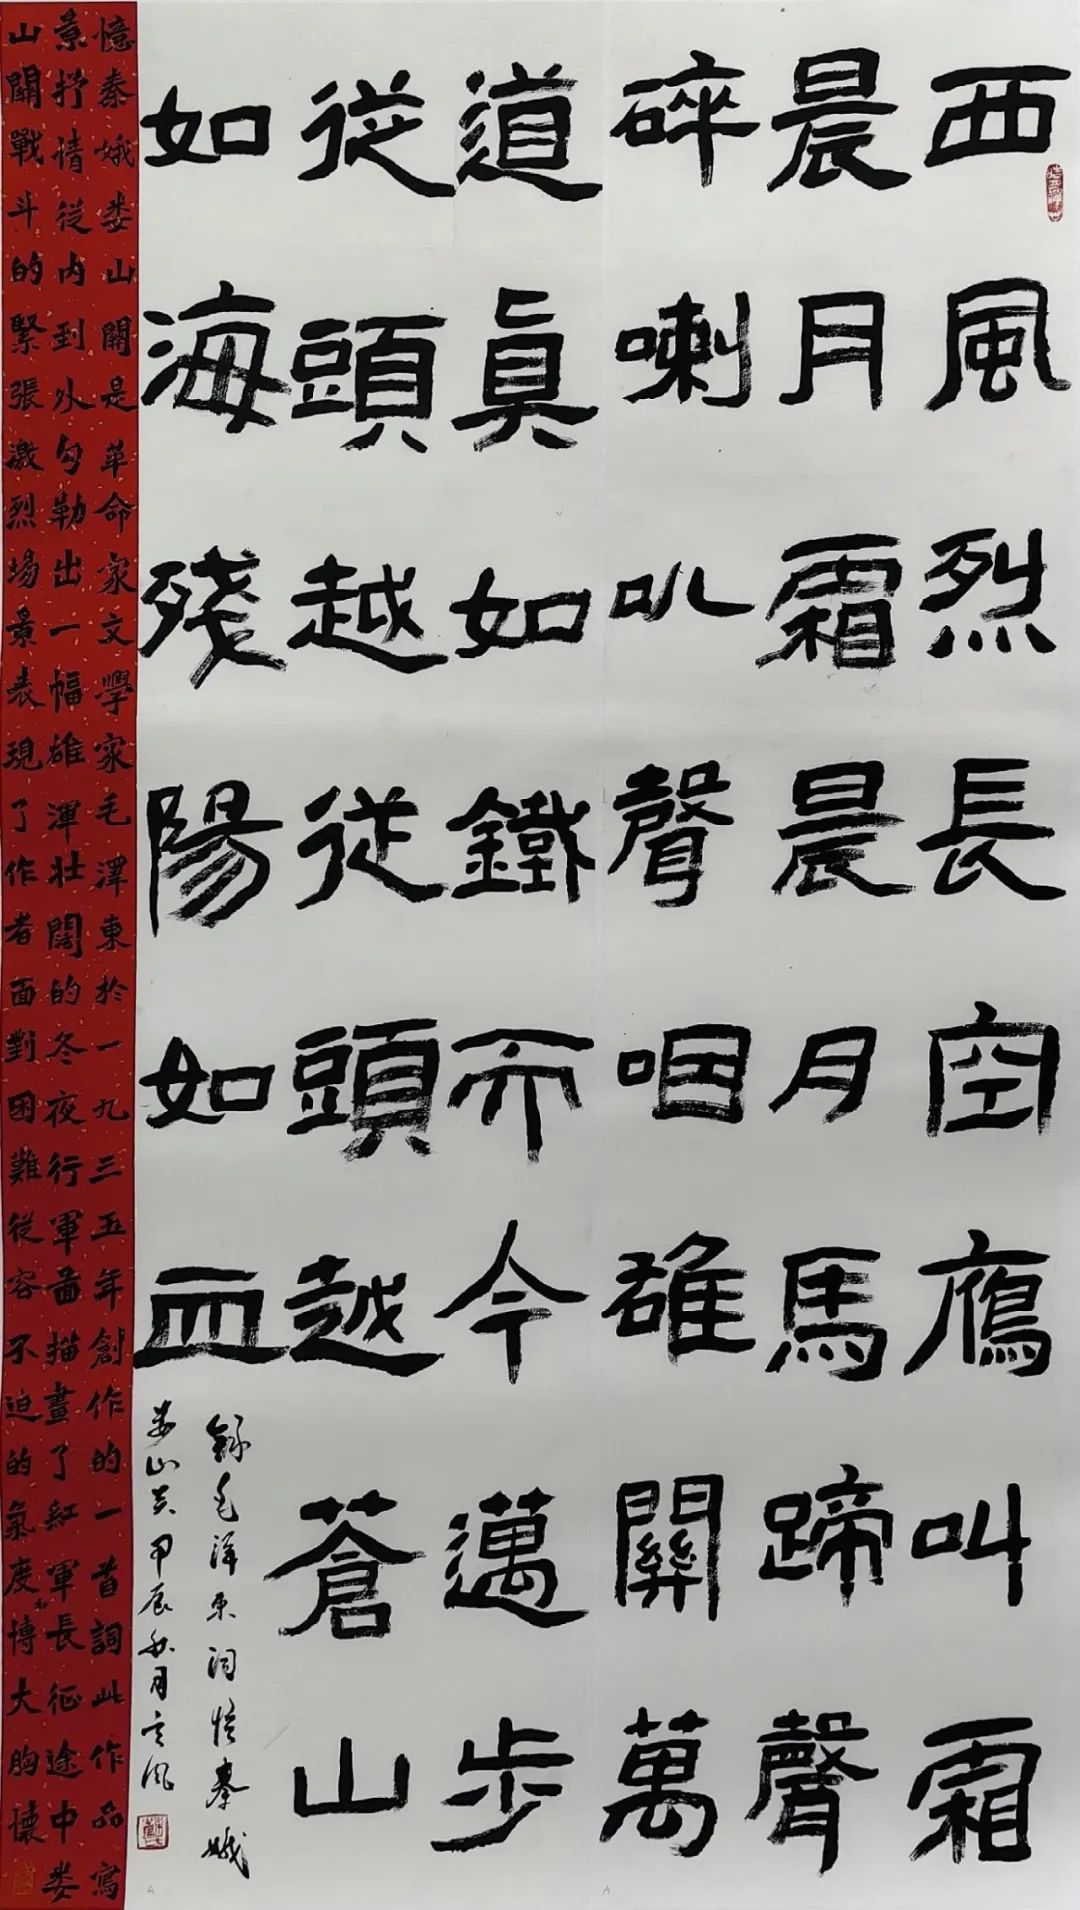 西風烈長空鴈叫霜
晨月霜晨月馬蹄聲
碎喇叭聲咽雄關萬
道真如鐵而今邁步
從頭越從頭越蒼山
如海殘陽如血
錄毛澤東詞憶秦娥
婁山关甲辰秋月立风
憶秦娥娄山關是革命家文學家毛澤東於一九三五年創作的一首詞此作品寫
景抒情從内到外勾勒出一幅雄渾壮闊的冬夜行軍畵描畫了紅軍長征途中娄
山關戰斗的緊張激烈場景表現了作者面對困難從容不迫的氣度和博大胸懷